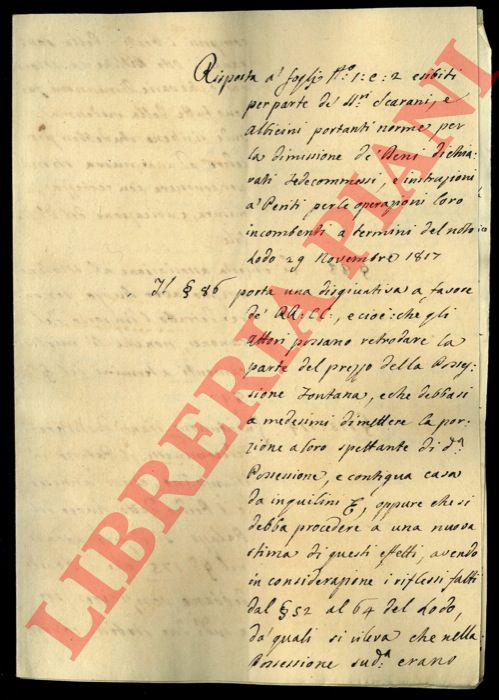 Risposta a' foglj N.º 1: e: 2 esibiti
per parte de' SS.ri Scarani, e
albicini portanti norme per
la dimissione de' Beni dichia,
rati fedecommessi, e instruzioni
a' Periti per le operazioni loro
incombenti a termini del noto
Lodo 29 Novembre 1817
Il § 86 porta una disgiuntiva a favore
de' RR: CC:, e cioè: che gli
attori possano retrodare la
parte del prezzo della Posses,
sione Fontana, e che debbasi
a medesimi dimettere la por,
zione a loro spettante di d.ª
Possessione, e contigua casa
da inquilini, oppure che si
debba procedere a una nuova
stima di questi effetti, avendo
in considerazione i riflessi fatti
dal § 52 al 64 del Lodo,
da' quali si rileva che nella
Possessione sud.ª erano
LIBRERIA PIANI